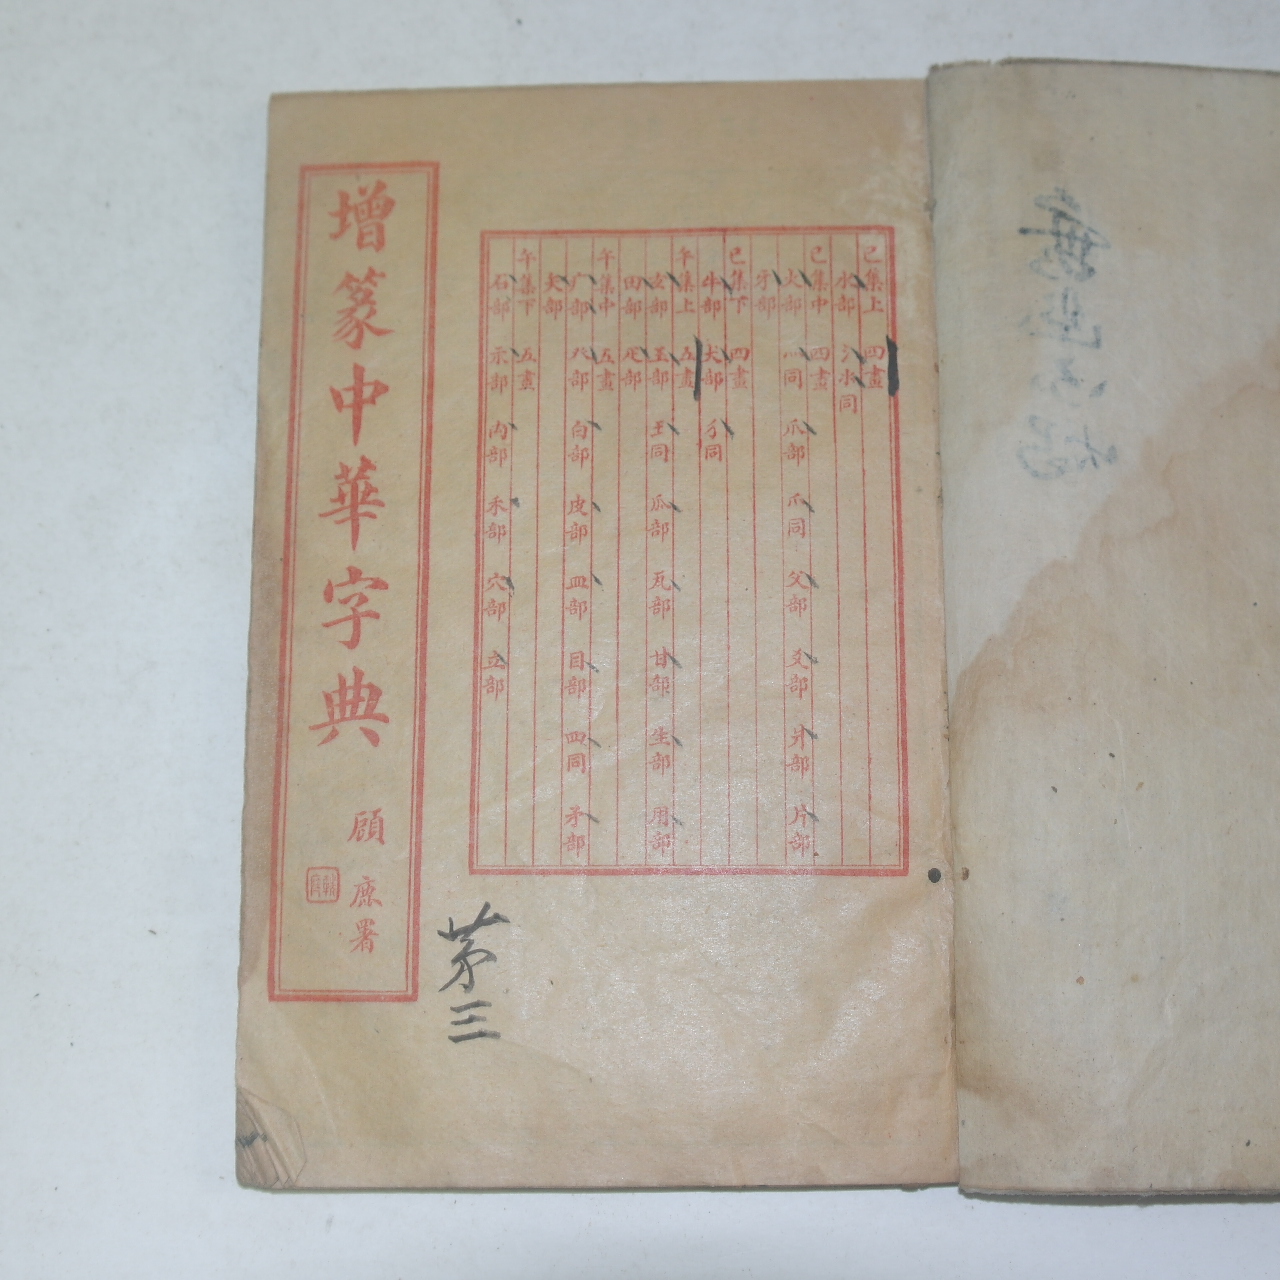 己集上 四畫
水部 氵氺同
己集中 四畫
火部 灬同 爪部 爫同 父部 爻部 爿部 片部
牙部
己集下 四畫
牛部 犬部 犭同
午集上 五畫
玄部 玉部 王同 瓜部 瓦部 甘部 生部 用部
田部 疋部
午集中 五畫
疒部 癶部 白部 皮部 皿部 目部 罒同 矛部
矢部
午集下 五畫
石部 示部 禸部 禾部 穴部 立部
增篆中華字典
顧
署
茅三